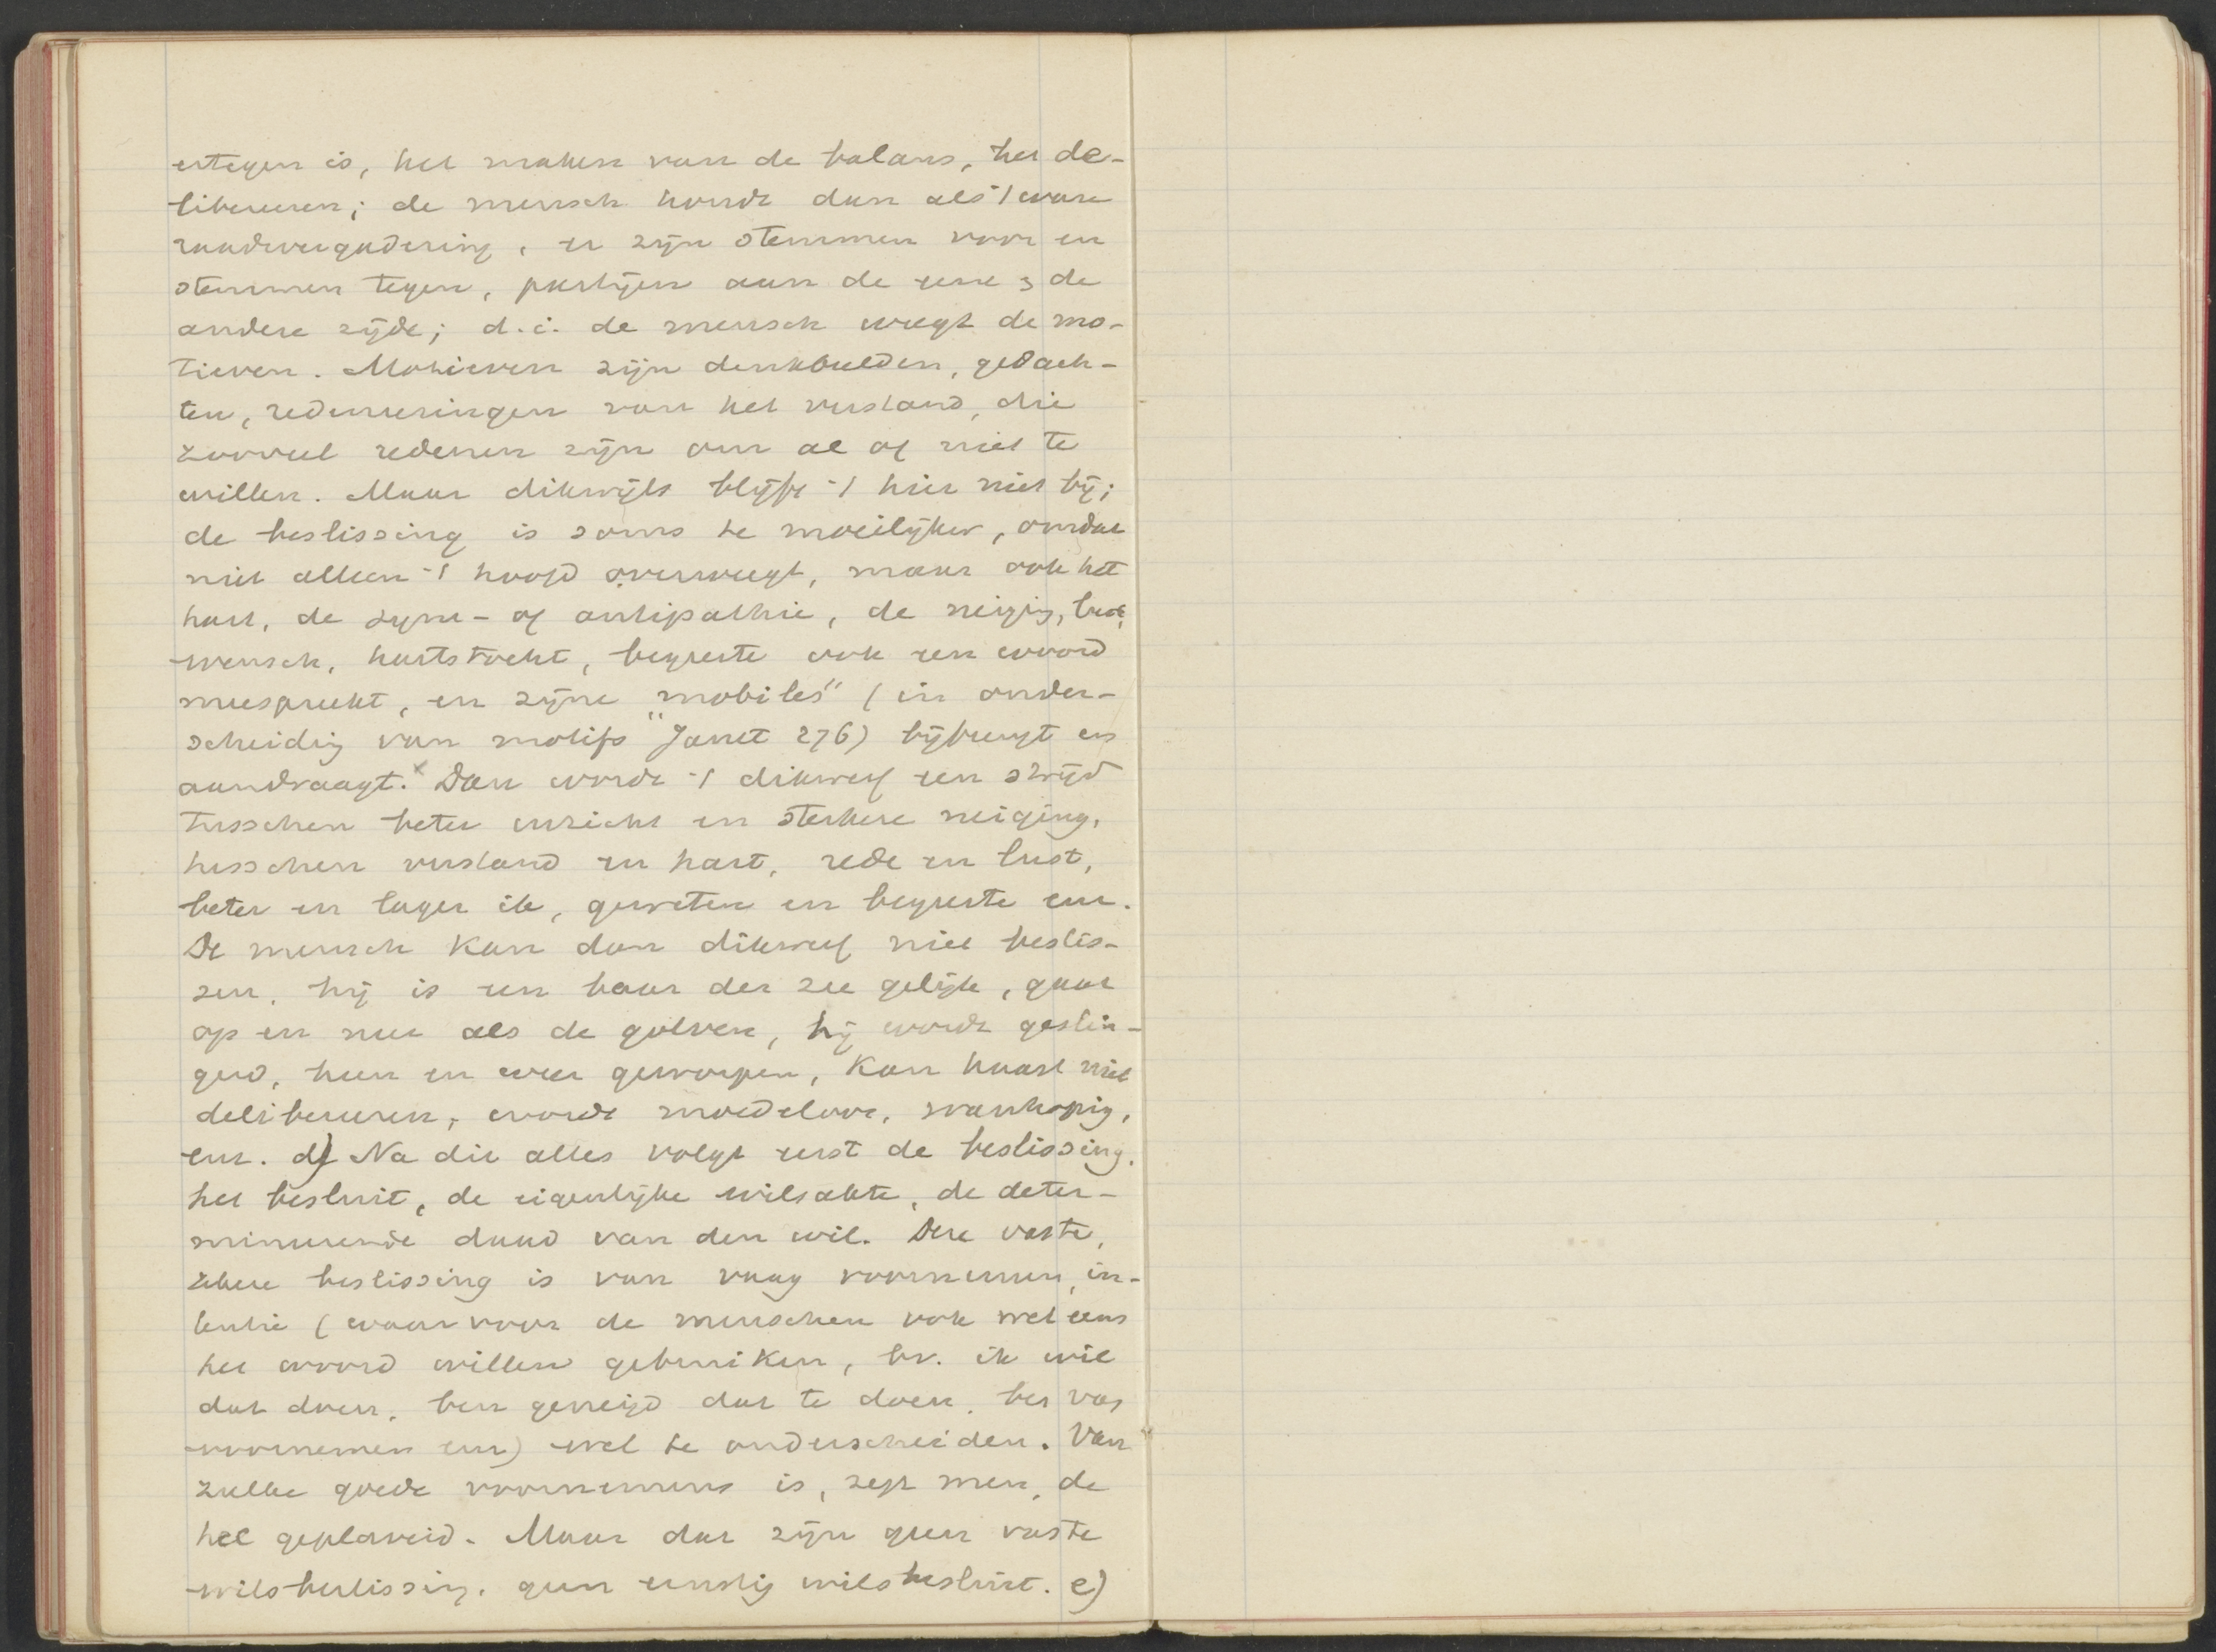 ertegen is, het maken van de balans, het de-
libereeren; de mensch houdt dan als 't ware
raadsvergadering, er zijn stemmen voor en
stemmen tegen, partijen aan de eene & de
andere zijde; d.i. de mensch weegt de mo-
tieven. Motieven zijn denkbeelden, gedach-
ten, redeneeringen van het verstand, die
zooveel redenen zijn om al of niet te
willen. Maar dikwijls blijft 't hier niet bij;
de beslissing is soms te moeilijker, omdat
niet alleen 't hoofd overweegt, maar ook het
hart, de sym- of antipathie, de neigig,
wensch, hartstocht, begeerte ook een woord
meespreekt, en zijne "mobiles" (in onder-
scheidig van motifs" Janet 276) bijbrengt en
aandraagt.x Dan wordt 't dikwerf een strijd
tusschen beter inzicht en sterkere neiging,
tusschen verstand en hart, rede en lust,
beter en lager ik, geweten en begeerte enz.
De mensch kan dan dikwerf niet beslis-
sen, hij is een baar der zee gelijk, gaat
op en neer als de golven, hij wordt geslin-
gerd, heen en weer geworpen, kan haast niet
delibereeren, wordt moedeloos, wanhopig,
enz. d) Na dit alles volgt eerst de beslissing,
het besluit, de eigenlijke wilsakte, de deter-
mineerende daad van den wil. Deze vaste,
zekere beslissing is van vaag voornemen, in-
tentie (waarvoor de menschen ook wel eens
het woord willen gebruiken, bv. ik wil
dat doen, ben geneigd dat te doen, heb
voornemen enz) wel te onderscheiden. Van
zulke goede voornemens is, zegt men, de
hel geplaveid. Maar dat zijn geen vaste
wilsbeslissing, geen ernstig wilsbesluit. e)